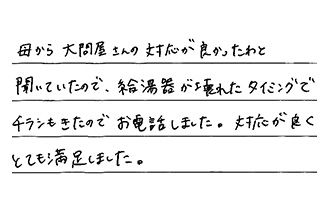 母から大問屋さんの対応が良かったわと
聞いていたので、給湯器が壊れたタイミングで
チラシもきたのでお電話しました。対応が良く
とても満足しました。